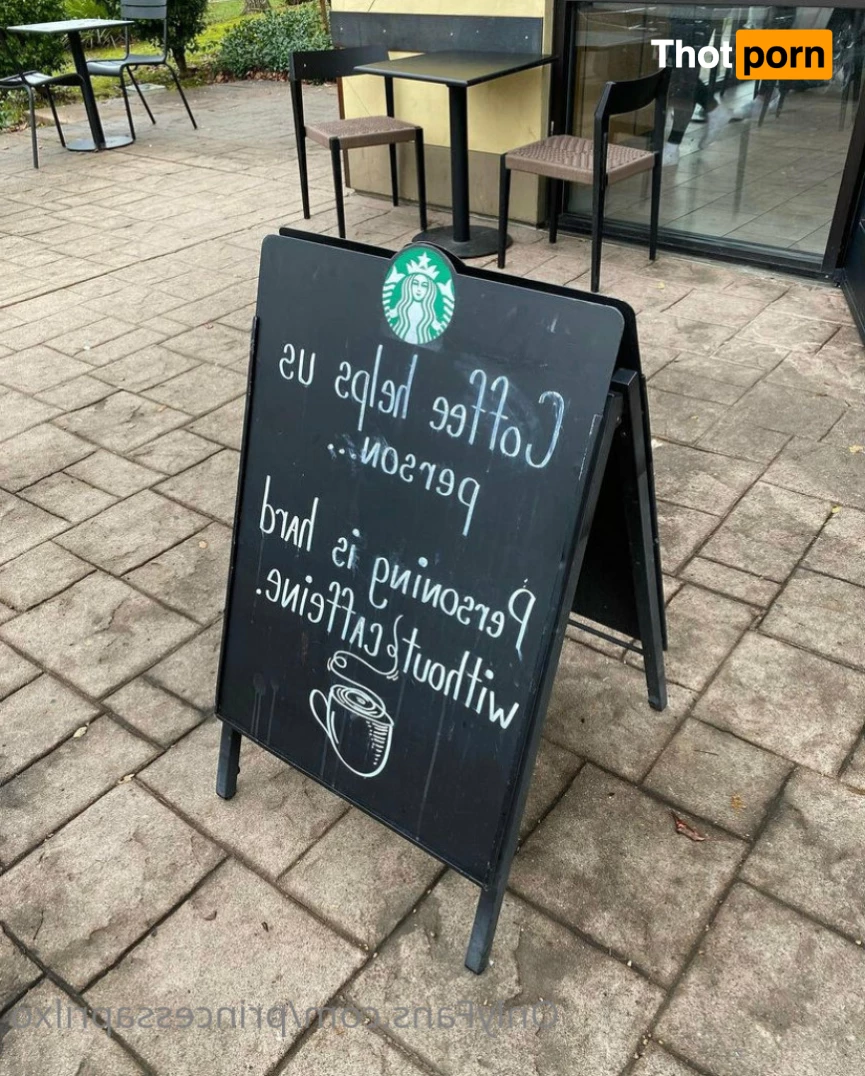 Thot porn
Coffee helps us
person...
Personing is hard
without caffeine.
OnlyFans.com/princessaprilxo